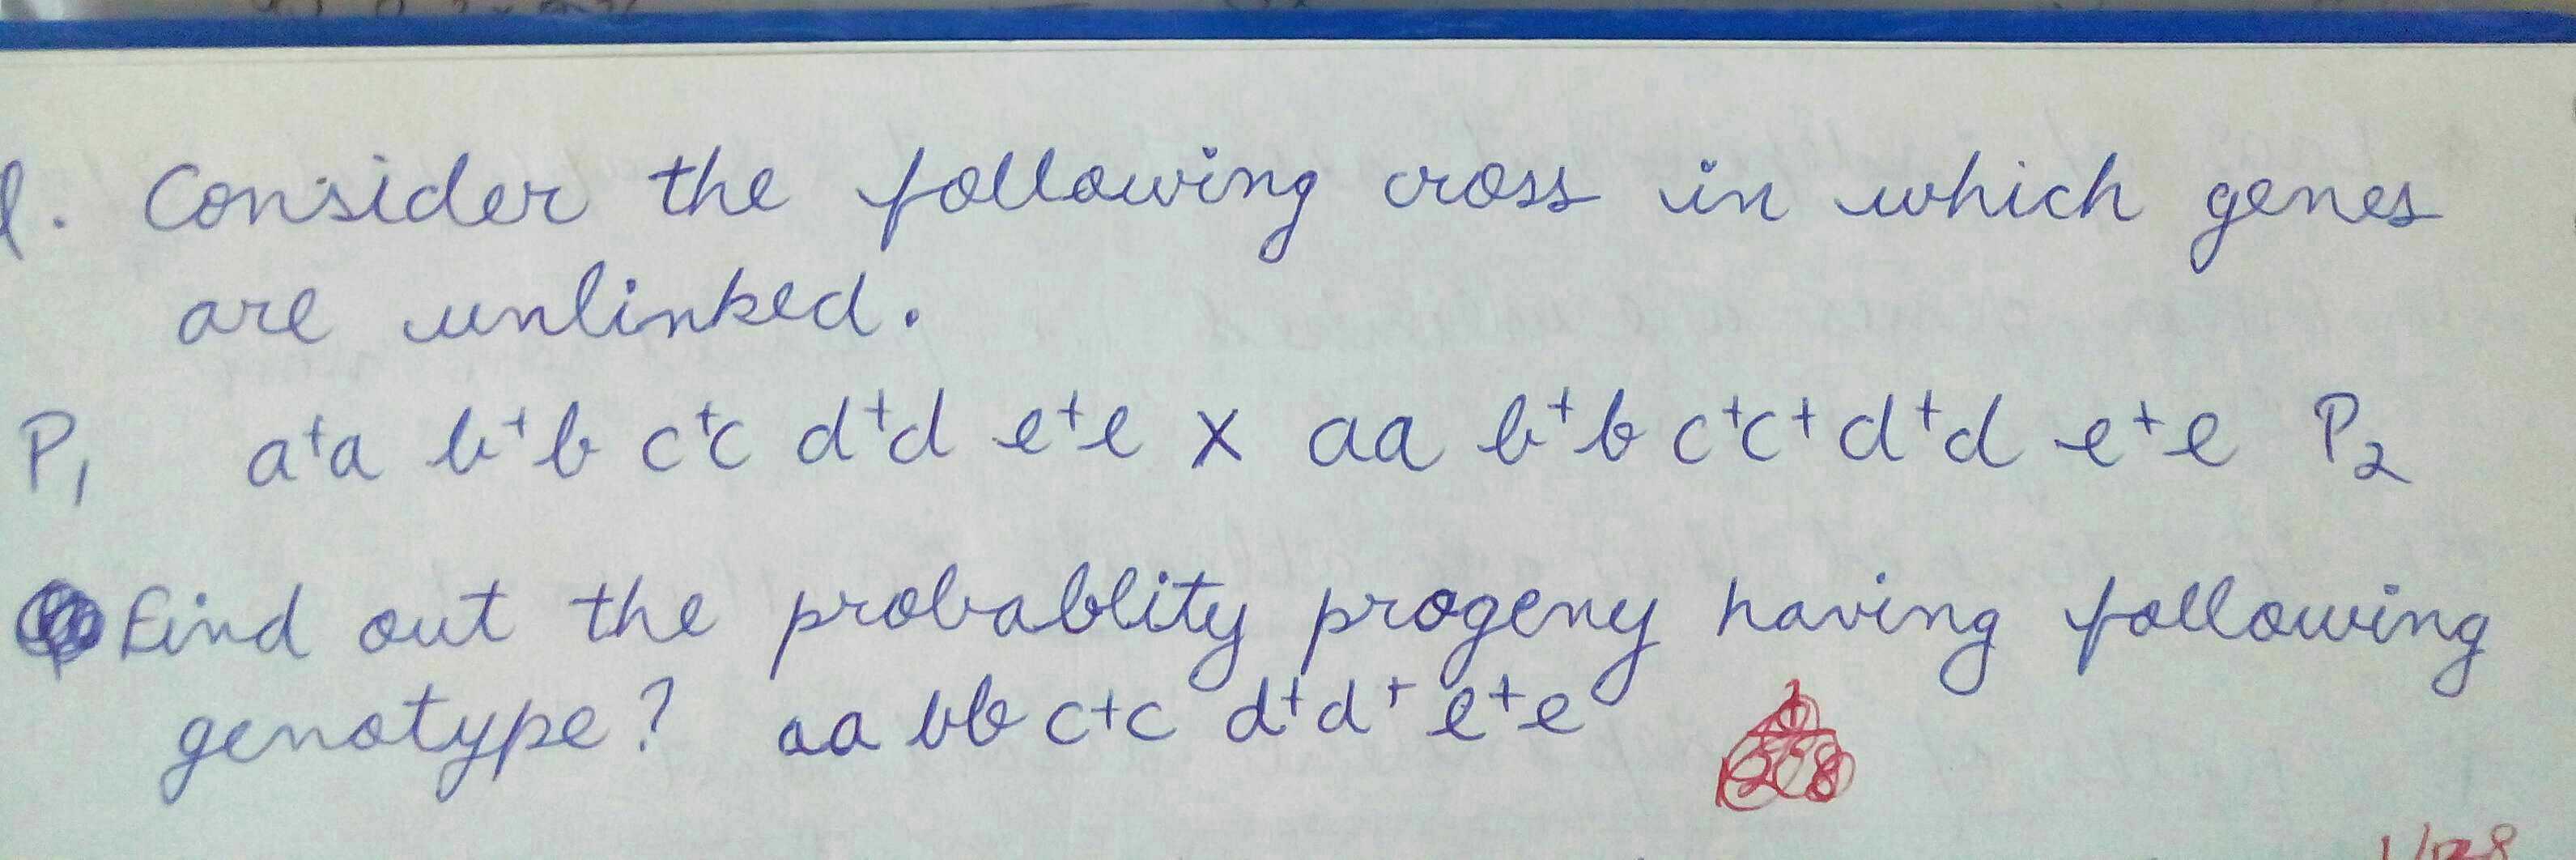 Q. Consider the following cross in which genes
are unlinked.
P₁ a⁺a b⁺b c⁺c d⁺d e⁺e x aa b⁺b c⁺c⁺ d⁺d e⁺e P₂
Find out the probablity progeny having following
genotype? aa bb c+c d+d+ e+e
1/128